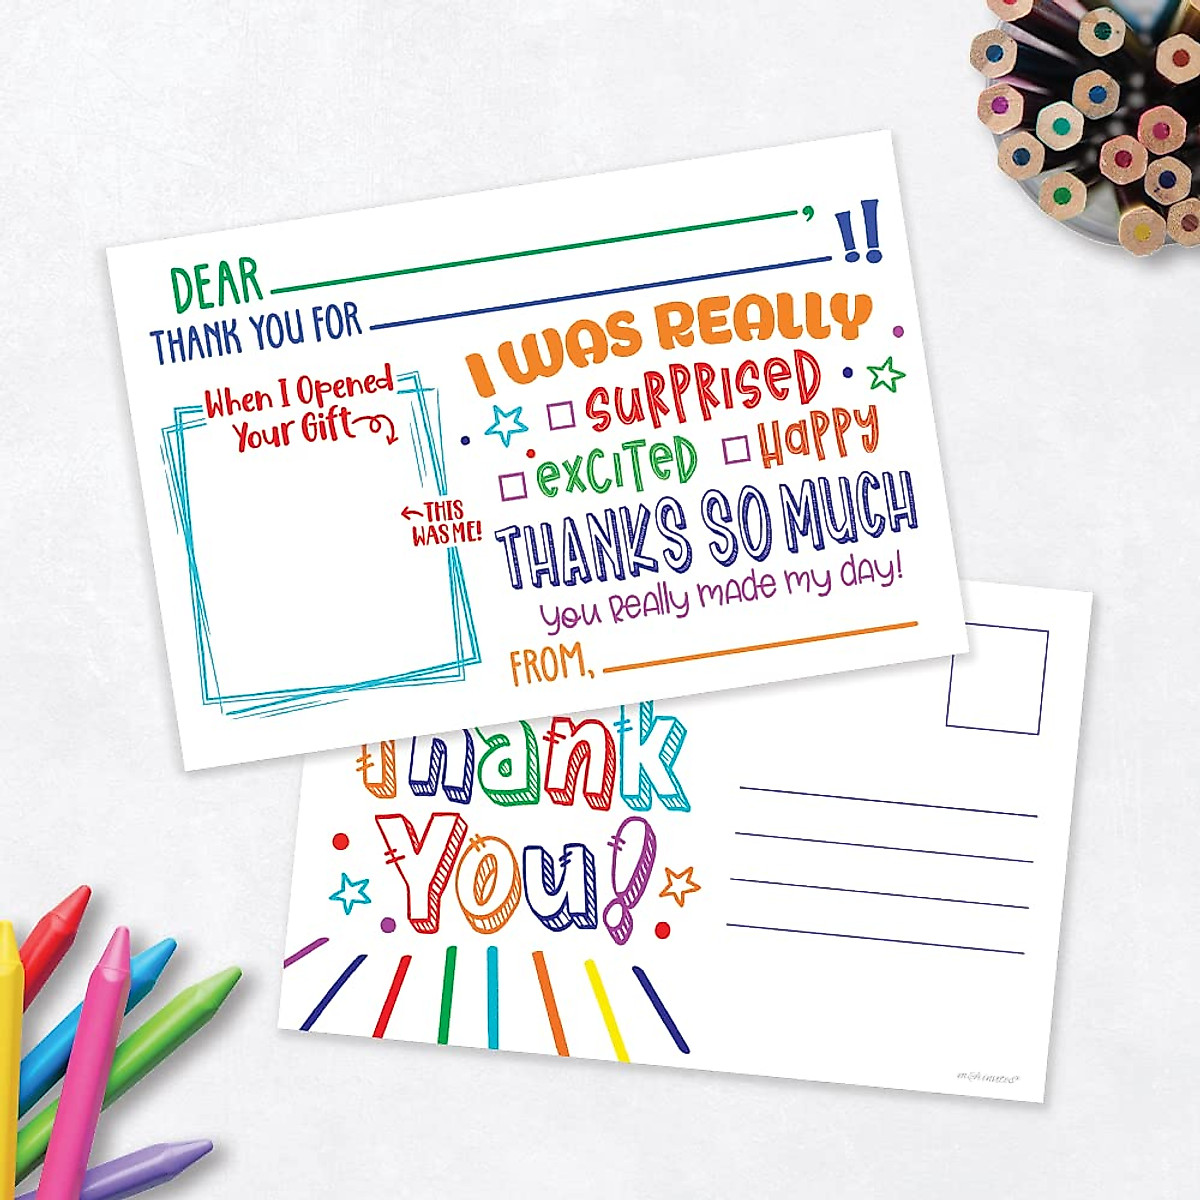 DEAR ,
THANK YOU FOR !!
When I Opened
Your Gift
THIS
WAS ME!
I WAS REALLY
SURPRISED
EXCITED HAPPY
THANKS SO MUCH
you Really made my day!
FROM,
Thank
You!
m&h invites®